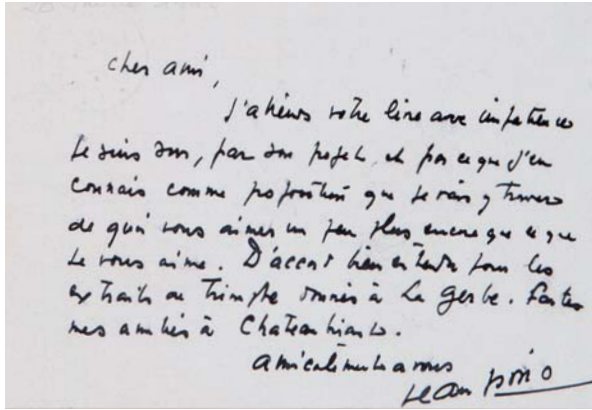 cher ami,
j'attends votre livre avec impatience
Je suis sûr, par son projet, et par ce que j'en
connais comme proposition que je vais y trouver
de quoi vous aimer un peu plus encore que ce que
je vous aime. D'accord bien entendu pour les
extraits de Triomphe donnés à La Gerbe. Faites
mes amitiés à Chateaubriant.
Amicalement à vous
Jean Giono